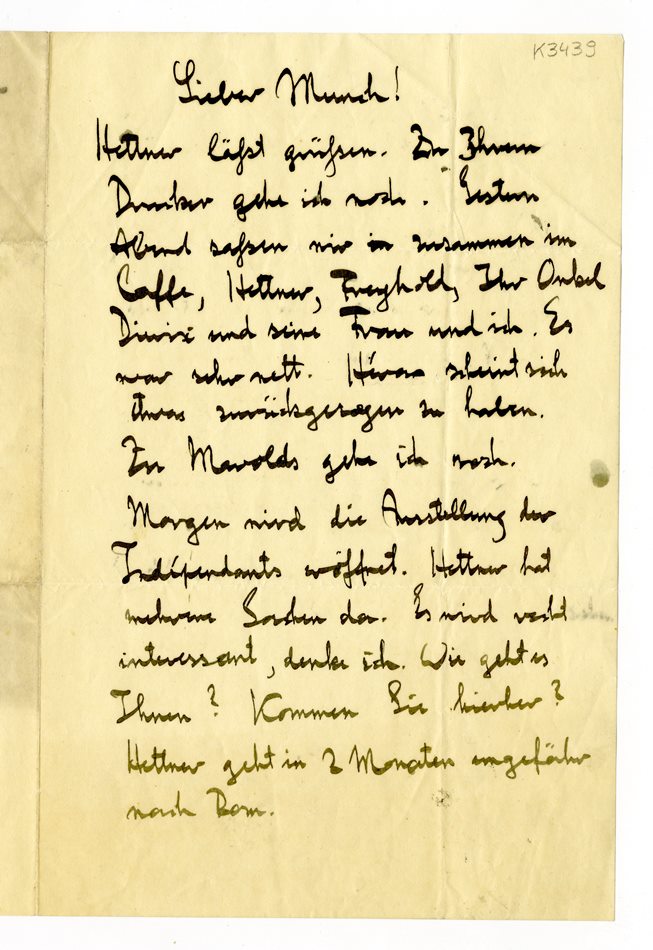 K3439
Lieber Munch!
Hettner läßt grüßen. Zu Ihrem
Drucker gehe ich noch. Gestern
Abend saßen wir in zusammen im
Caffe, Hettner, Freyhold, Ihr Onkel
und seine Frau und ich. Es
war sehr nett. scheint sich
etwas zurückgezogen zu haben.
Zu Marolds gehe ich noch.
Morgen wird die Ausstellung der
Indépendants eröffnet. Hettner hat
mehrere Sachen da. Es wird recht
interessant, denke ich. Wie geht es
Ihnen? Kommen Sie hierher?
Hettner geht in 2 Monaten ungefähr
nach Rom.